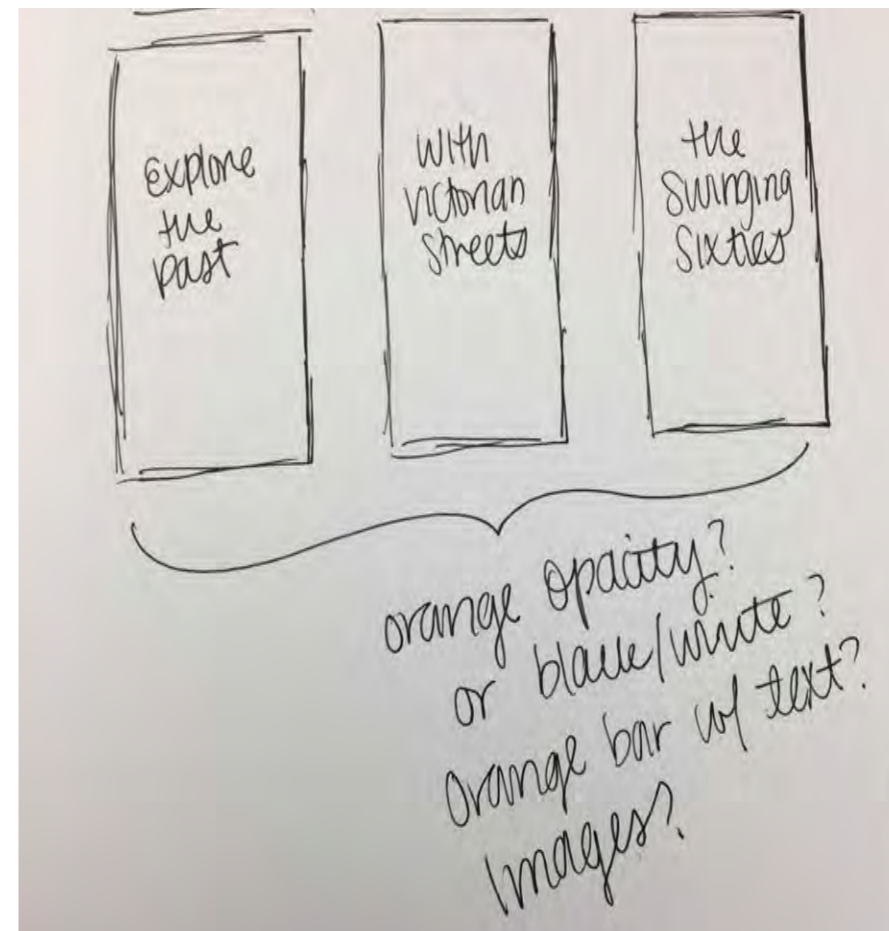 Explore
the
past
With
Victorian
Streets
the
Swinging
Sixties
orange opacity?
or black/white?
orange bar w/ text?
Images?